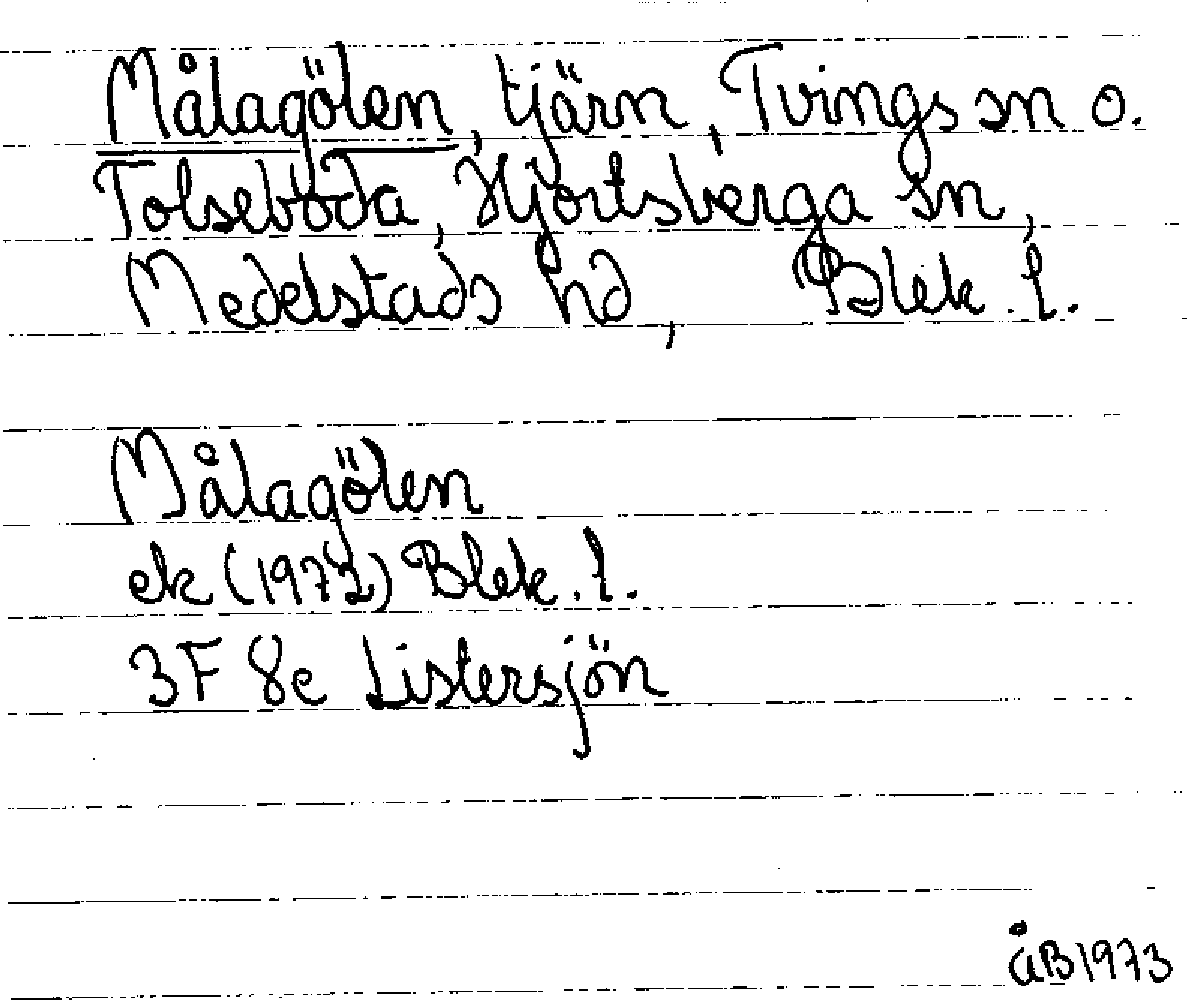 Målagölen, tjärn, Tvings sn o.
Tolseboda, Hjortsberga sn,
Medelstads hd, Blek. l.
Målagölen
ek (1972) Blek. l.
3F 8e Listersjön
ÅB 1973